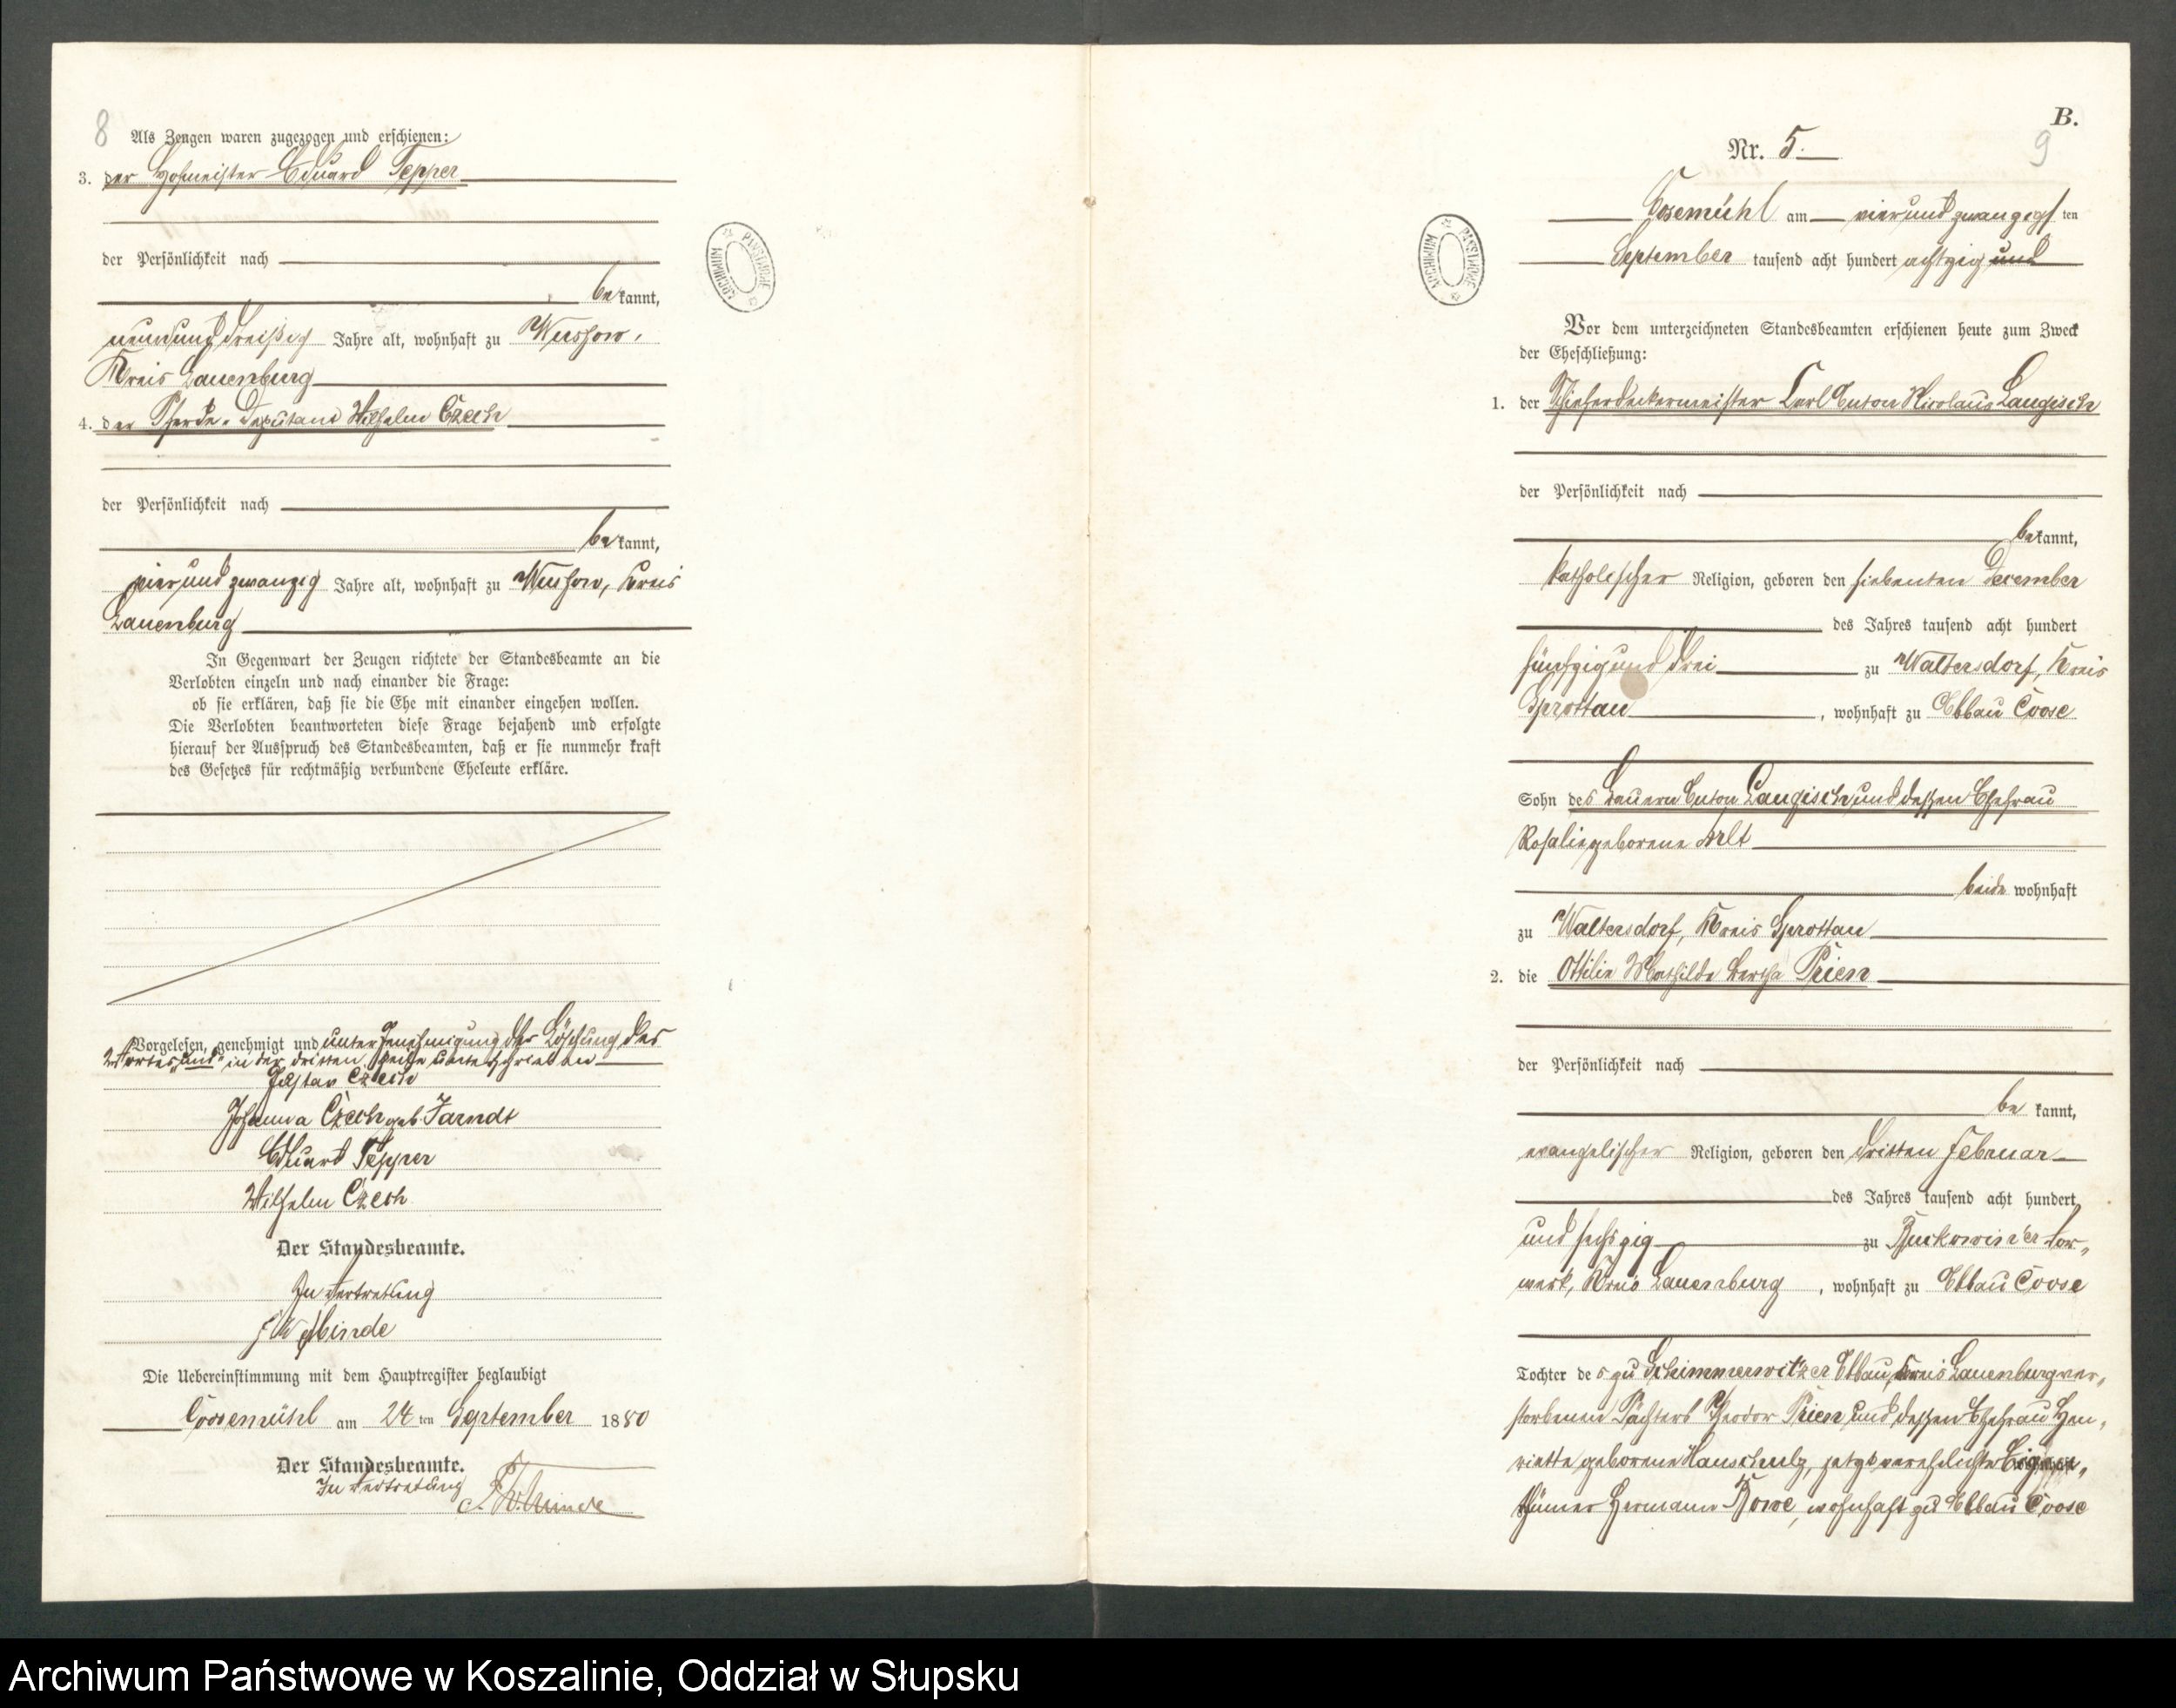 8
Als Zeugen waren zugezogen und erschienen:
3. der Hofmeister Eduard Tepper
der Persönlichkeit nach
bekannt,
neununddreißig Jahre alt, wohnhaft zu Wussow,
Kreis Lauenburg
4. der Pferde-Deputant Wilhelm Czech
der Persönlichkeit nach
bekannt,
vierundzwanzig Jahre alt, wohnhaft zu Wussow, Kreis
Lauenburg
In Gegenwart der Zeugen richtete der Standesbeamte an die
Verlobten einzeln und nach einander die Frage:
ob sie erklären, daß sie die Ehe mit einander eingehen wollen.
Die Verlobten beantworteten diese Frage bejahend und erfolgte
hierauf der Ausspruch des Standesbeamten, daß er sie nunmehr kraft
des Gesetzes für rechtmäßig verbundene Eheleute erkläre.
Vorgelesen, genehmigt und unter Genehmigung der Löschung des
Wortes „und“ in der dritten Zeile unterschrieben
Gustav Czech
Johanna Czech geb. Jarndt
Eduard Tepper
Wilhelm Czech
Der Standesbeamte.
In Vertretung
Die Uebereinstimmung mit dem Hauptregister beglaubigt
Coosemühl am 24 ten September 1880
Der Standesbeamte.
In Vertretung
ARCHIWUM PAŃSTWOWE
B.
9
Nr. 5.
Cosemühl am vierundzwanzigsten
September tausend acht hundert achtzig und
ARCHIWUM PAŃSTWOWE
Vor dem unterzeichneten Standesbeamten erschienen heute zum Zweck
der Eheschließung:
1. der Schieferdeckermeister Carl Anton Nicolaus Langisch
der Persönlichkeit nach
bekannt,
katholischer Religion, geboren den siebenten December
des Jahres tausend acht hundert
fünfzig und drei zu Waltersdorf, Kreis
Sprottau, wohnhaft zu Abbau Coose
Sohn des Bauern Anton Langisch und dessen Ehefrau
Rosalie geborene Arlt
beide wohnhaft
zu Waltersdorf, Kreis Sprottau
2. die Ottilie Mathilde Bertha Prien
der Persönlichkeit nach
bekannt,
evangelischer Religion, geboren den dritten Februar
des Jahres tausend acht hundert
und sechszig zu Buckowiner Vor-
werk, Kreis Lauenburg, wohnhaft zu Abbau Coose
Tochter des zu Schimmerwitzer Abbau, Kreis Lauenburg ver-
storbenen Pächters Theodor Prien und dessen Ehefrau Hen-
riette geborene Hanschulz, jetzt verehelichte Eigen-
thümer Hermann Kowe, wohnhaft zu Abbau Coose
Archiwum Państwowe w Koszalinie, Oddział w Słupsku